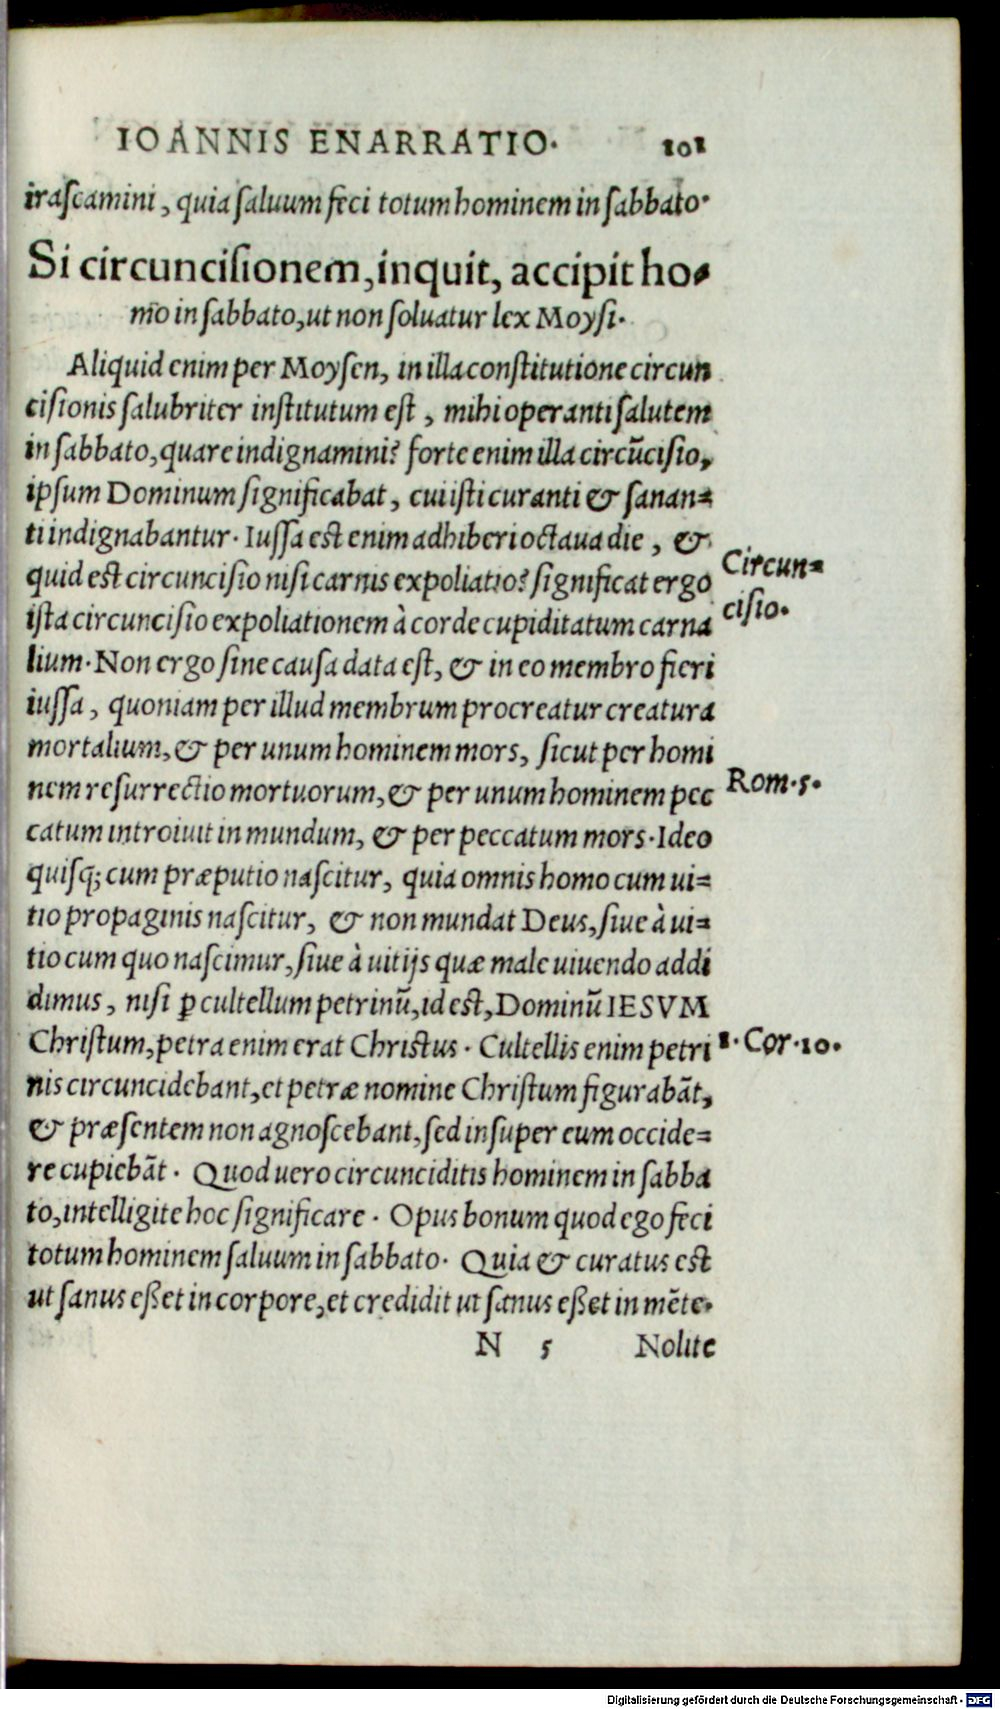 IOANNIS ENARRATIO. 101
irascamini, quia saluum feci totum hominem in sabbato.
Si circuncisionem, inquit, accipit ho-
mo in sabbato, ut non soluatur lex Moysi.
Aliquid enim per Moysen, in illa constitutione circun
cisionis salubriter institutum est, mihi operanti salutem
in sabbato, quare indignamini? forte enim illa circũcisio,
ipsum Dominum significabat, cui isti curanti & sanan-
ti indignabantur. Iussa est enim adhiberi octaua die, &
quid est circuncisio nisi carnis expoliatio? significat ergo
Circun-
ista circuncisio expoliationem à corde cupiditatum carna
cisio.
lium. Non ergo sine causa data est, & in eo membro fieri
iussa, quoniam per illud membrum procreatur creatura
mortalium, & per unum hominem mors, sicut per homi
nem resurrectio mortuorum, & per unum hominem pec
Rom. 5.
catum introiuit in mundum, & per peccatum mors. Ideo
quisq; cum præputio nascitur, quia omnis homo cum ui-
tio propaginis nascitur, & non mundat Deus, siue à ui-
tio cum quo nascimur, siue à uitijs quæ male uiuendo addi
dimus, nisi ꝑ cultellum petrinũ, id est, Dominũ IESVM
Christum, petra enim erat Christus. Cultellis enim petri
1. Cor. 10.
nis circuncidebant, et petræ nomine Christum figurabãt,
& præsentem non agnoscebant, sed insuper eum occide-
re cupiebãt. Quod uero circunciditis hominem in sabba
to, intelligite hoc significare. Opus bonum quod ego feci
totum hominem saluum in sabbato. Quia & curatus est
ut sanus eßet in corpore, et credidit ut sanus eßet in mẽte.
N 5 Nolite
Digitalisierung gefördert durch die Deutsche Forschungsgemeinschaft - DFG